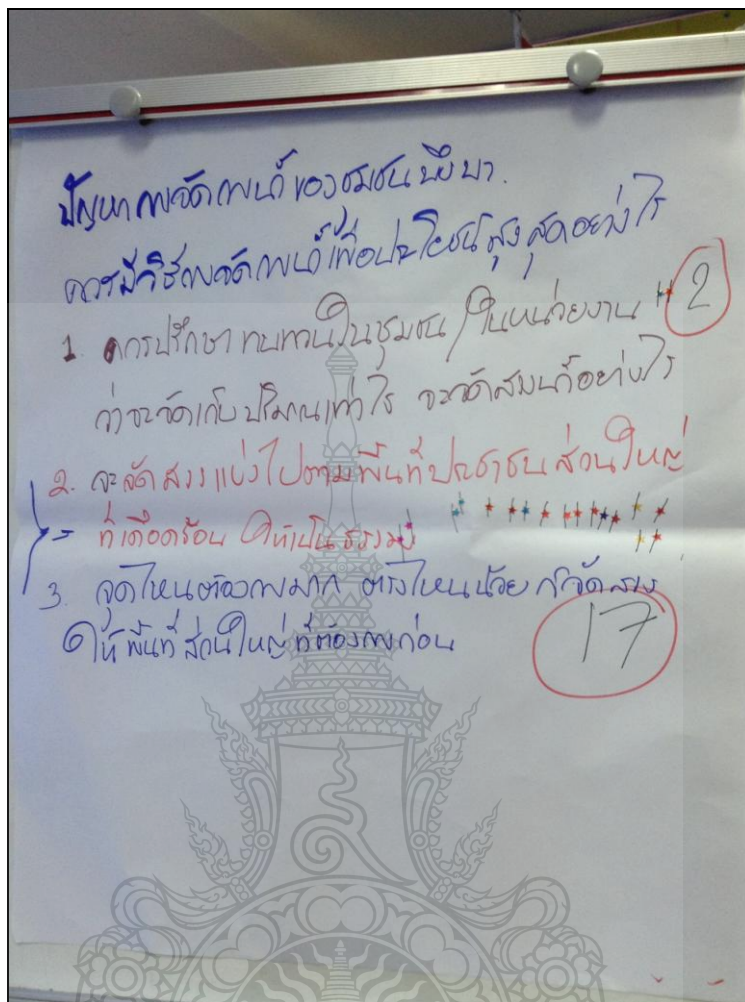 ปัญหาการจัดการน้ำของชุมชนบึงบา.
ควรมีวิธีการจัดการน้ำเพื่อประโยชน์สูงสุดอย่างไร
1. ควรปรึกษาทบทวนในชุมชน ในหน่วยงาน 2
ว่าจะจัดเก็บปริมาณเท่าไร จะจัดสรรน้ำอย่างไร
2. จะจัดสรรแบ่งไปตามพื้นที่ประชาชนส่วนใหญ่
= ที่เดือดร้อน ให้เป็นธรรม
3. จุดไหนต้องการมาก ตรงไหนน้อย ก็จัดสรร
ให้พื้นที่ส่วนใหญ่ที่ต้องการก่อน 17